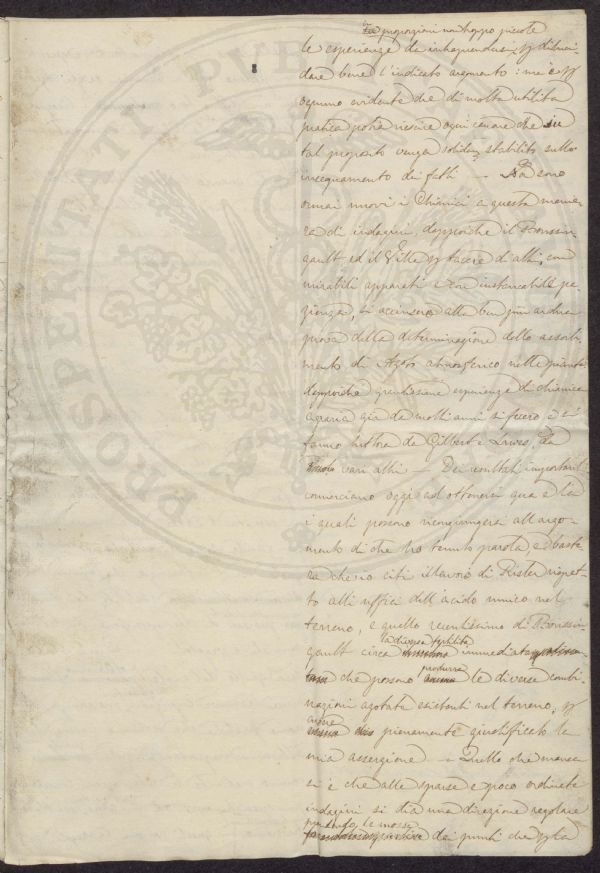 proporzioni non troppo piccole
le esperienze da intraprendersi p diluci
dare bene l'indicato argomento: ma è p
ognuno evidente che di molta utilità
pratica potrà riescire ogni cenone che su
tal proposito venga solidam stabilito sullo
insegnamento dei fatti — Nè sono
ormai nuovi i Chimici a questa manie
ra di indagini, dappoiche il Boussin
gault ed il Ville p tacere di altri, con
mirabili apparati e con instancabile pa
zienza, si accinsero alla ben più ardua
prova della determinazione dello assorbi
mento di Azoto atmosferico nelle piante
dappoiche grandissime esperienze di chimica
agraria già da molti anni si fecero, e si
fanno tuttora da Gilbert e Lawes, da
vari altri — Dei resultati importanti
cominciano oggi ad ottenersi qua e là
i quali possono ricongiungersi all'argo-
mento di che ho tenuto parola, e baste
rà che io citi il lavoro di Risler rispet-
to alli uffici dell'acido umico nel
terreno, e quello recentissimo di Boussin-
gault circa la diversa fertilità immediata
che possono produrre le diverse combi-
nazioni azotate esistenti nel terreno, p
avere pienamente giustificato la
mia asserzione — Quello che manca
si è che alle sparse e poco ordinate
indagini si dia una direzione regolare
prendendo le mosse dai punti che p la